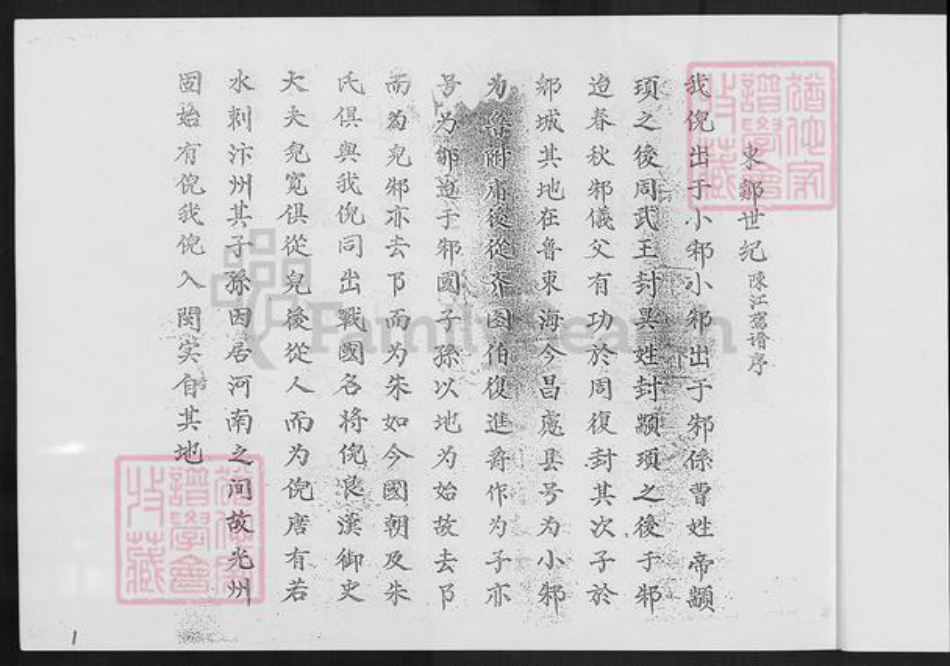 東鄒世纪 陳江舊谱序
我倪出于小邾小邾出于邾係曹姓帝颛
頊之後周武王封異姓封颛頊之後于邾
迨春秋邾儀父有功於周復封其次子於
郳城其地在鲁東海今昌慮县号为小邾
为鲁附庸後從齐图伯復進爵作为子亦
号为郳迨于邾國子孫以地为始故去阝
而为兒邾亦去阝而为朱如今國朝及朱
氏俱與我倪同出戰國名将倪良漢御史
大夫兒寬俱從兒後從人而为倪唐有若
水刺汴州其子孫因居河南之间故光州
固始有倪我倪入閩实自其地
FamilySearch
譜學會
收藏
譜學會
收藏
1